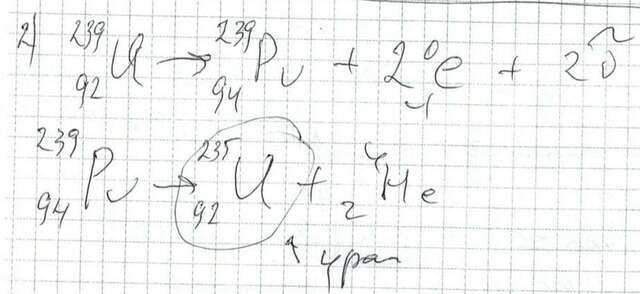 2) ²³⁹₉₂U → ²³⁹₉₄Pu + 2⁰₋₁e + 2ν̃
²³⁹₉₄Pu → ²³⁵₉₂U + ⁴₂He
уран